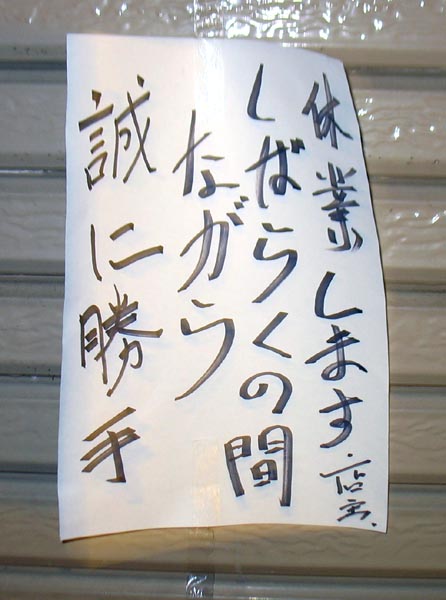 誠に勝手
ながら
しばらくの間
休業します。店主